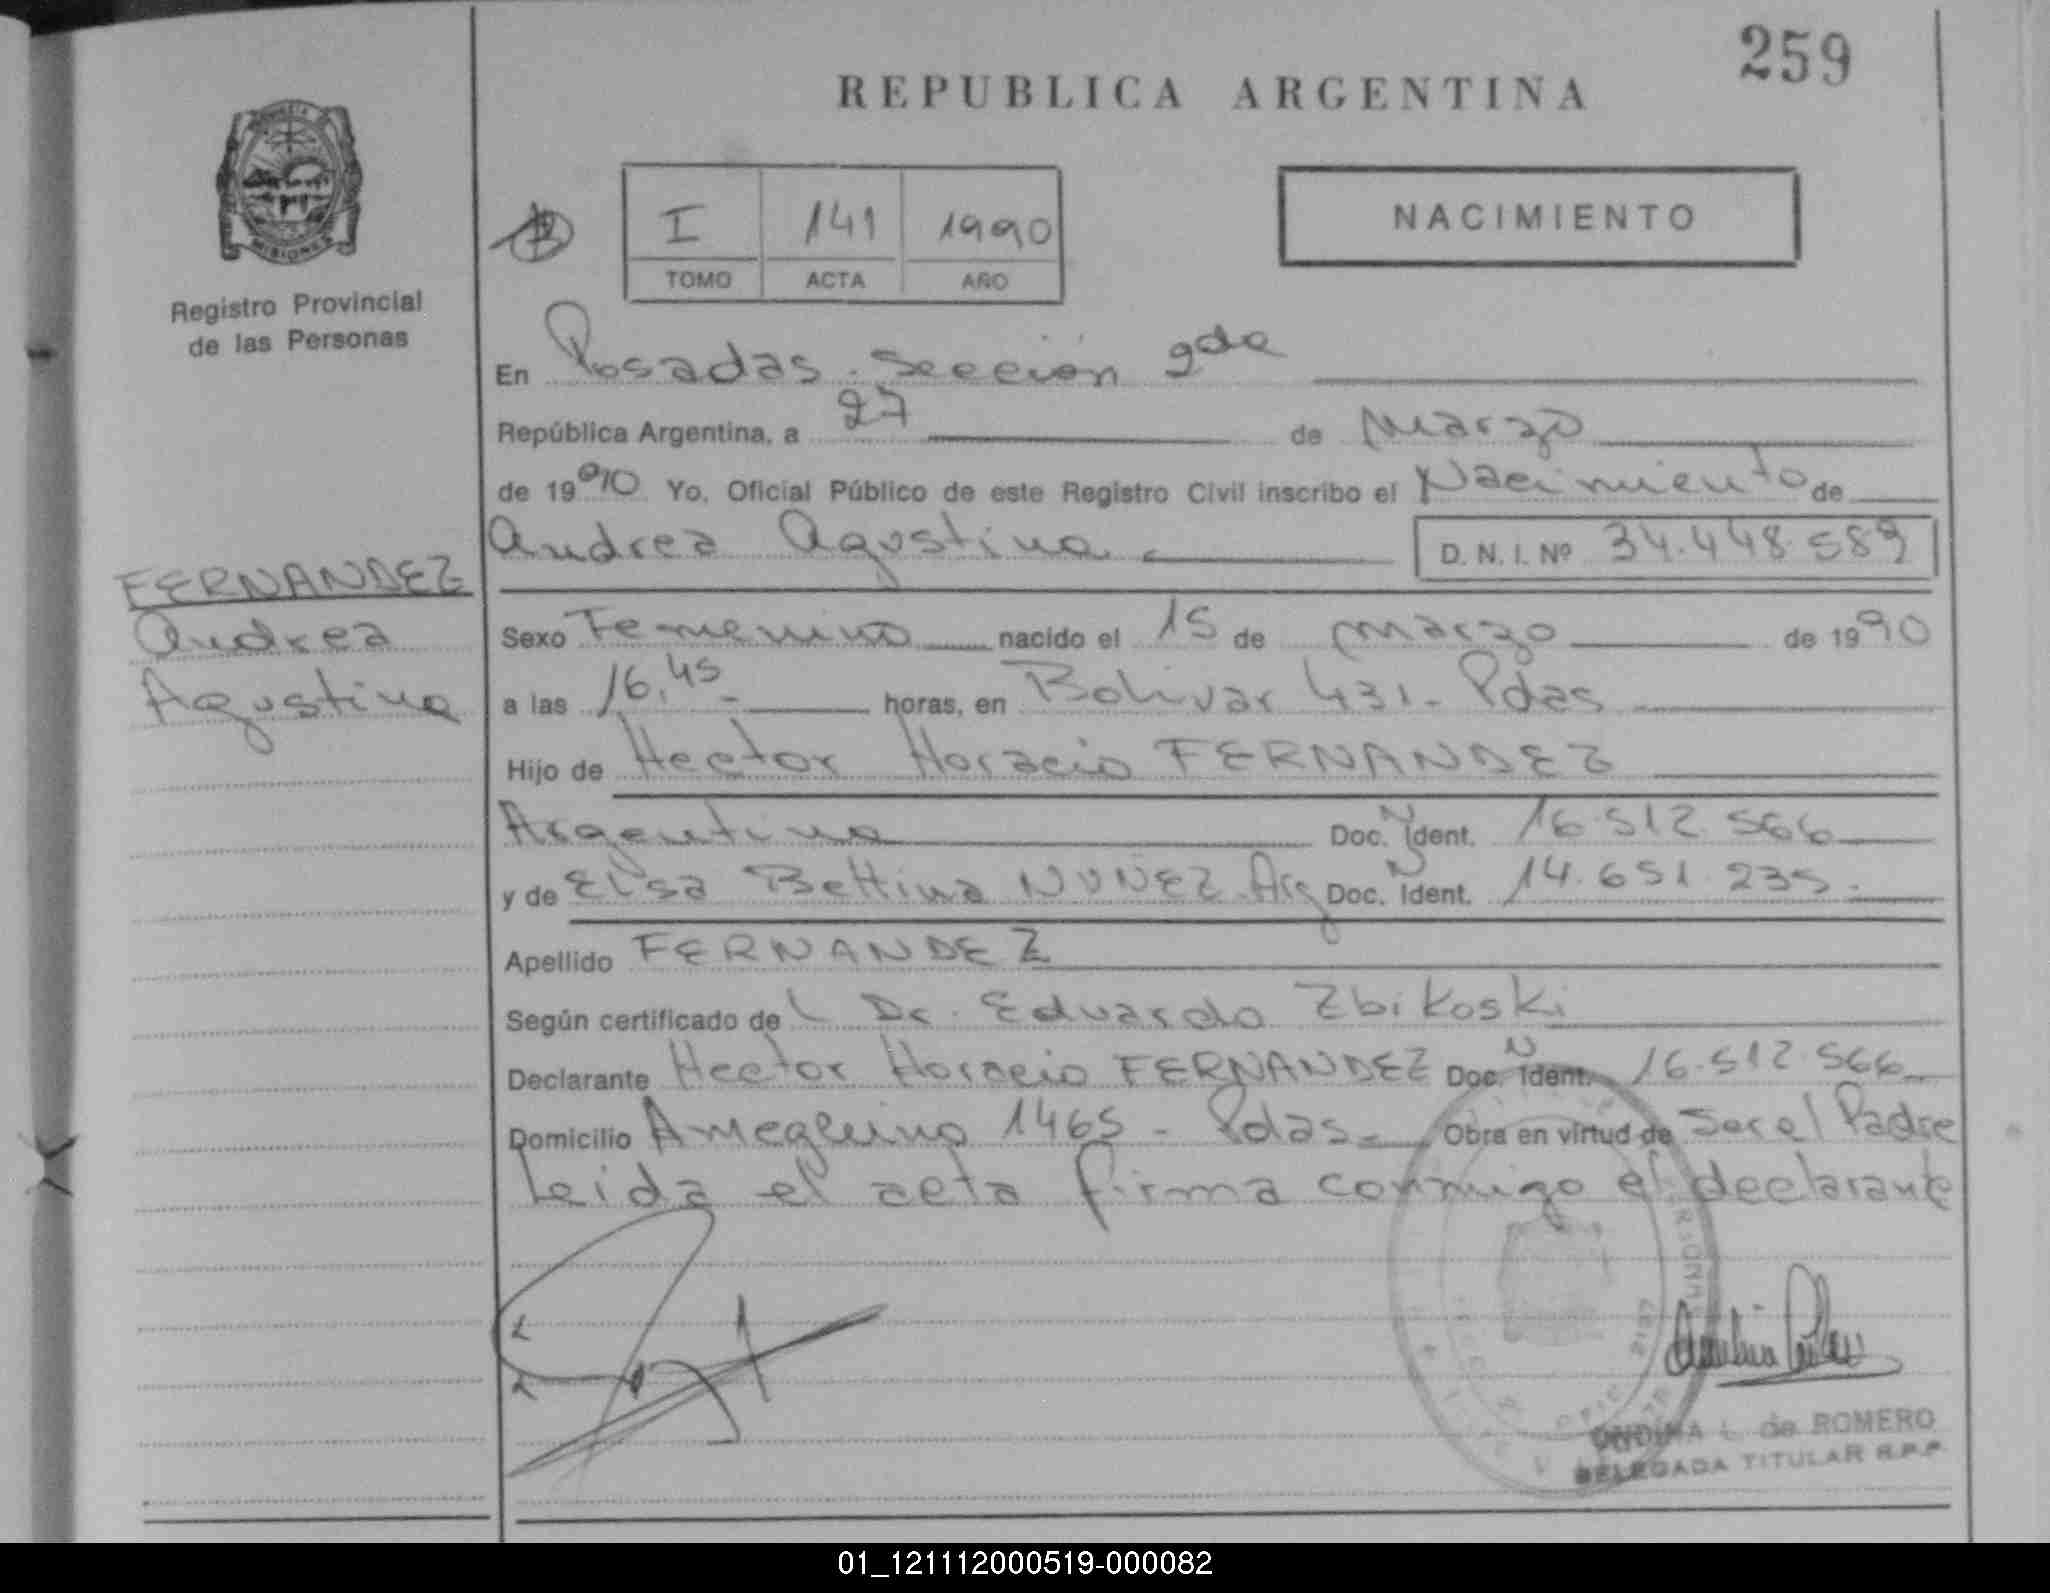 259
REPUBLICA ARGENTINA
MISIONES
Registro Provincial
de las Personas
I 141 1990
TOMO ACTA AÑO
NACIMIENTO
En Posadas. Sección 2da
República Argentina, a 27 de Marzo
de 1990 Yo, Oficial Público de este Registro Civil inscribo el Nacimiento de
Andrea Agustina D. N. I. Nº 34.448.589
FERNANDEZ
Andrea
Agustina
Sexo Femenino nacido el 15 de marzo de 1990
a las 16,45 horas, en Bolivar 431 - Pdas
Hijo de Hector Horacio FERNANDEZ
Argentino Doc. N Ident. 16.512.566
y de Elsa Bettina NUÑEZ Arg Doc. N Ident. 14.651.235.
Apellido FERNANDEZ
Según certificado de L Dr. Eduardo Zbikoski
Declarante Hector Horacio FERNANDEZ Doc. N Ident. 16.512.566
Domicilio Ameghino 1465 - Pdas - Obra en virtud de Ser el Padre
Leida el acta firma conmigo el declarante
ONDINA L. de ROMERO
DELEGADA TITULAR R.P.P.
01_121112000519-000082